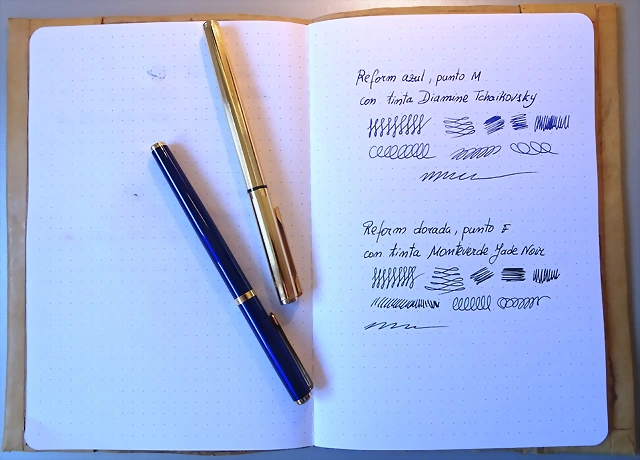 Reform azul, punto M
con tinta Diamine Tchaikovsky
Reform dorada, punto F
con tinta Monteverde Jade Noir